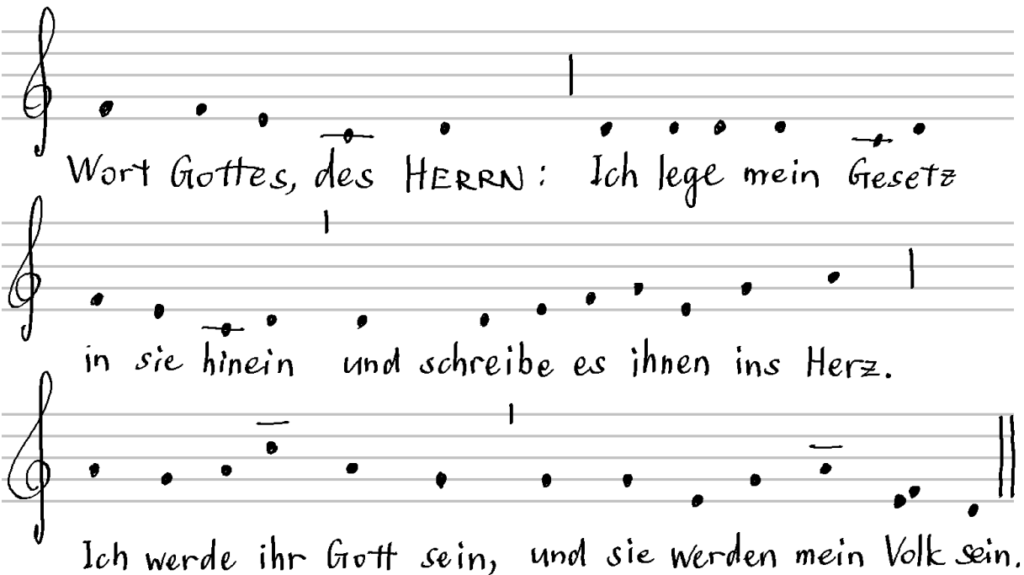 Wort Gottes, des HERRN: Ich lege mein Gesetz
in sie hinein und schreibe es ihnen ins Herz.
Ich werde ihr Gott sein, und sie werden mein Volk sein.